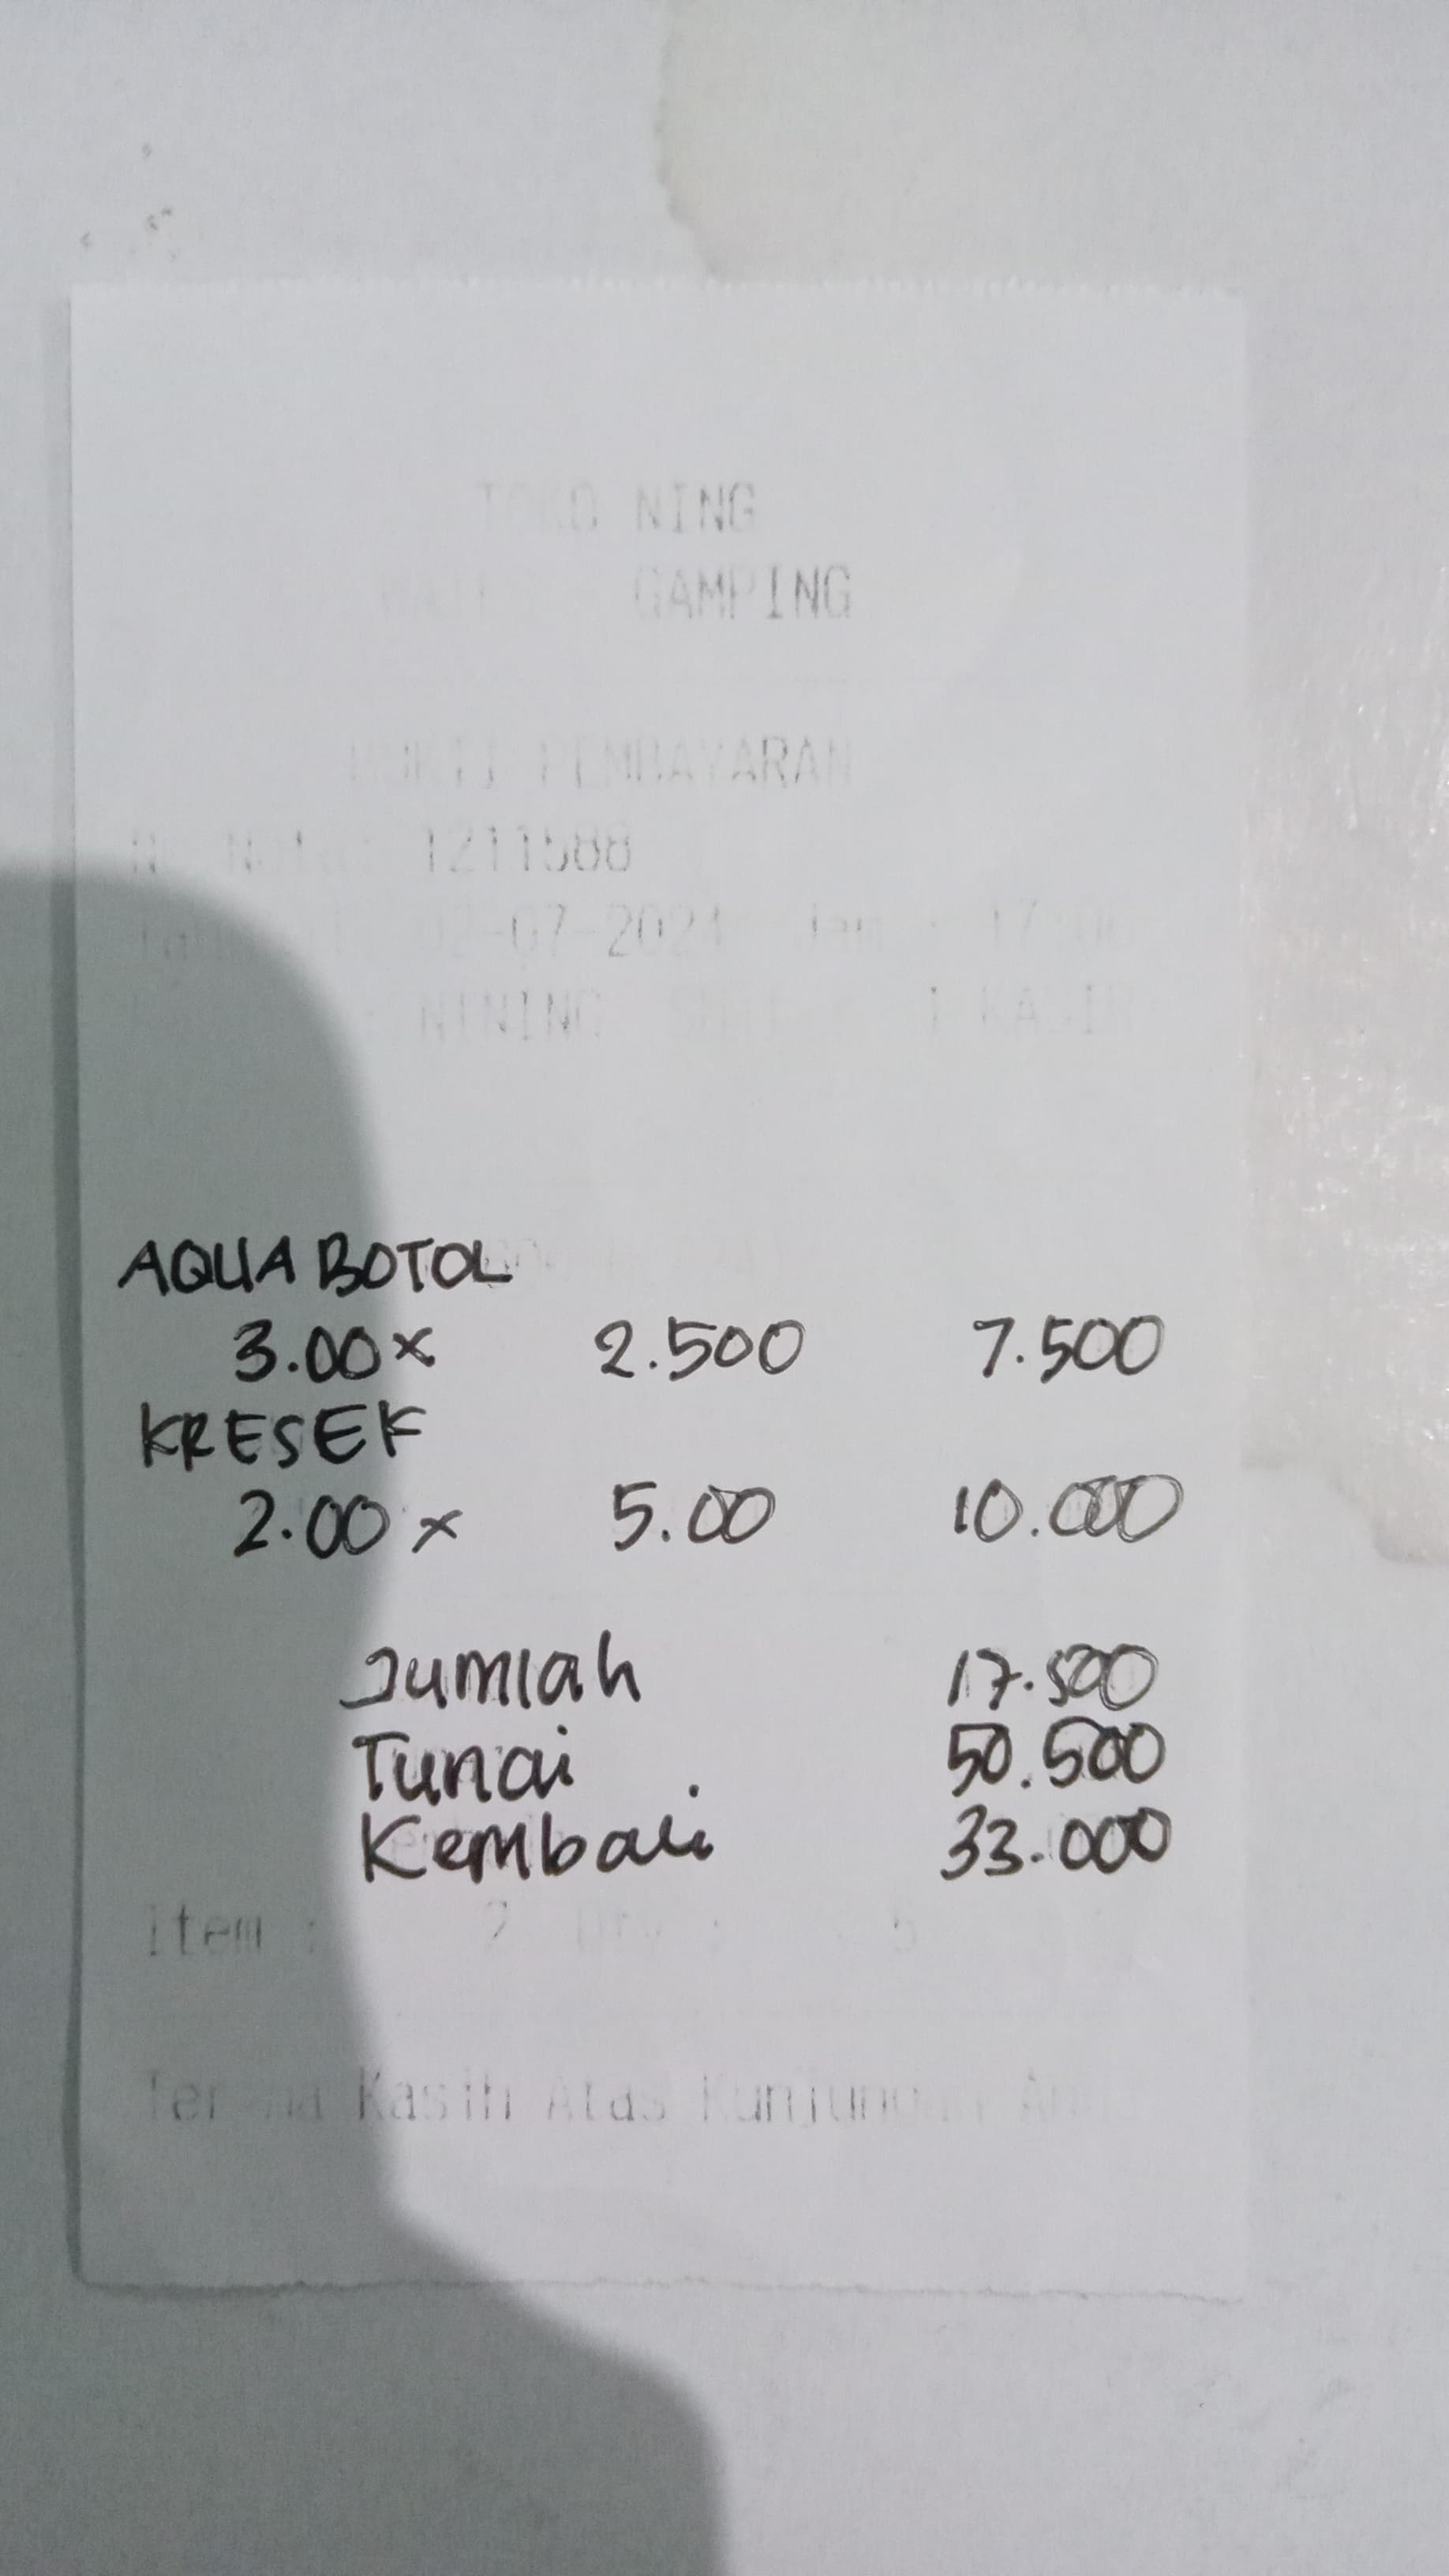 TOKO NING
GAMPING
BUKTI PEMBAYARAN
No Nota: 1211588
02-07-2024 Jam : 17:00
NINING 1 KASIR
AQUA BOTOL
3.00 x 2.500 7.500
KRESEK
2.00 x 5.00 10.000
Jumlah 17.500
Tunai 50.500
Kembali 33.000
Item : 2 Qty : 5
Terima Kasih Atas Kunjungan